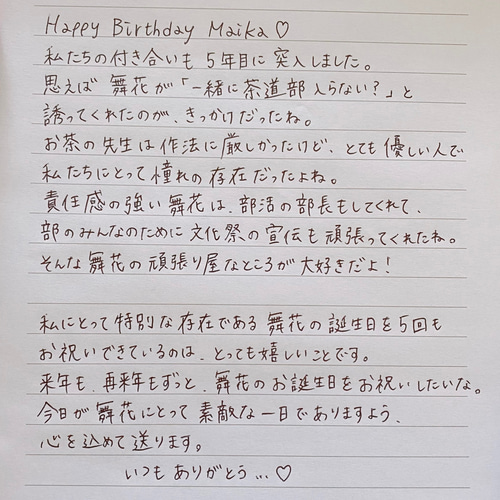 Happy Birthday Maika♡
私たちの付き合いも5年目に突入しました。
思えば舞花が「一緒に茶道部入らない?」と
誘ってくれたのが、きっかけだったね。
お茶の先生は作法に厳しかったけど、とても優しい人で
私たちにとって憧れの存在だったよね。
責任感の強い舞花は、部活の部長もしてくれて、
部のみんなのために文化祭の宣伝も頑張ってくれたね。
そんな舞花の頑張り屋なところが大好きだよ!
私にとって特別な存在である舞花の誕生日を5回も
お祝いできているのは、とっても嬉しいことです。
来年も、再来年もずっと、舞花のお誕生日をお祝いしたいな。
今日が舞花にとって素敵な一日でありますよう、
心を込めて送ります。
いつもありがとう…♡